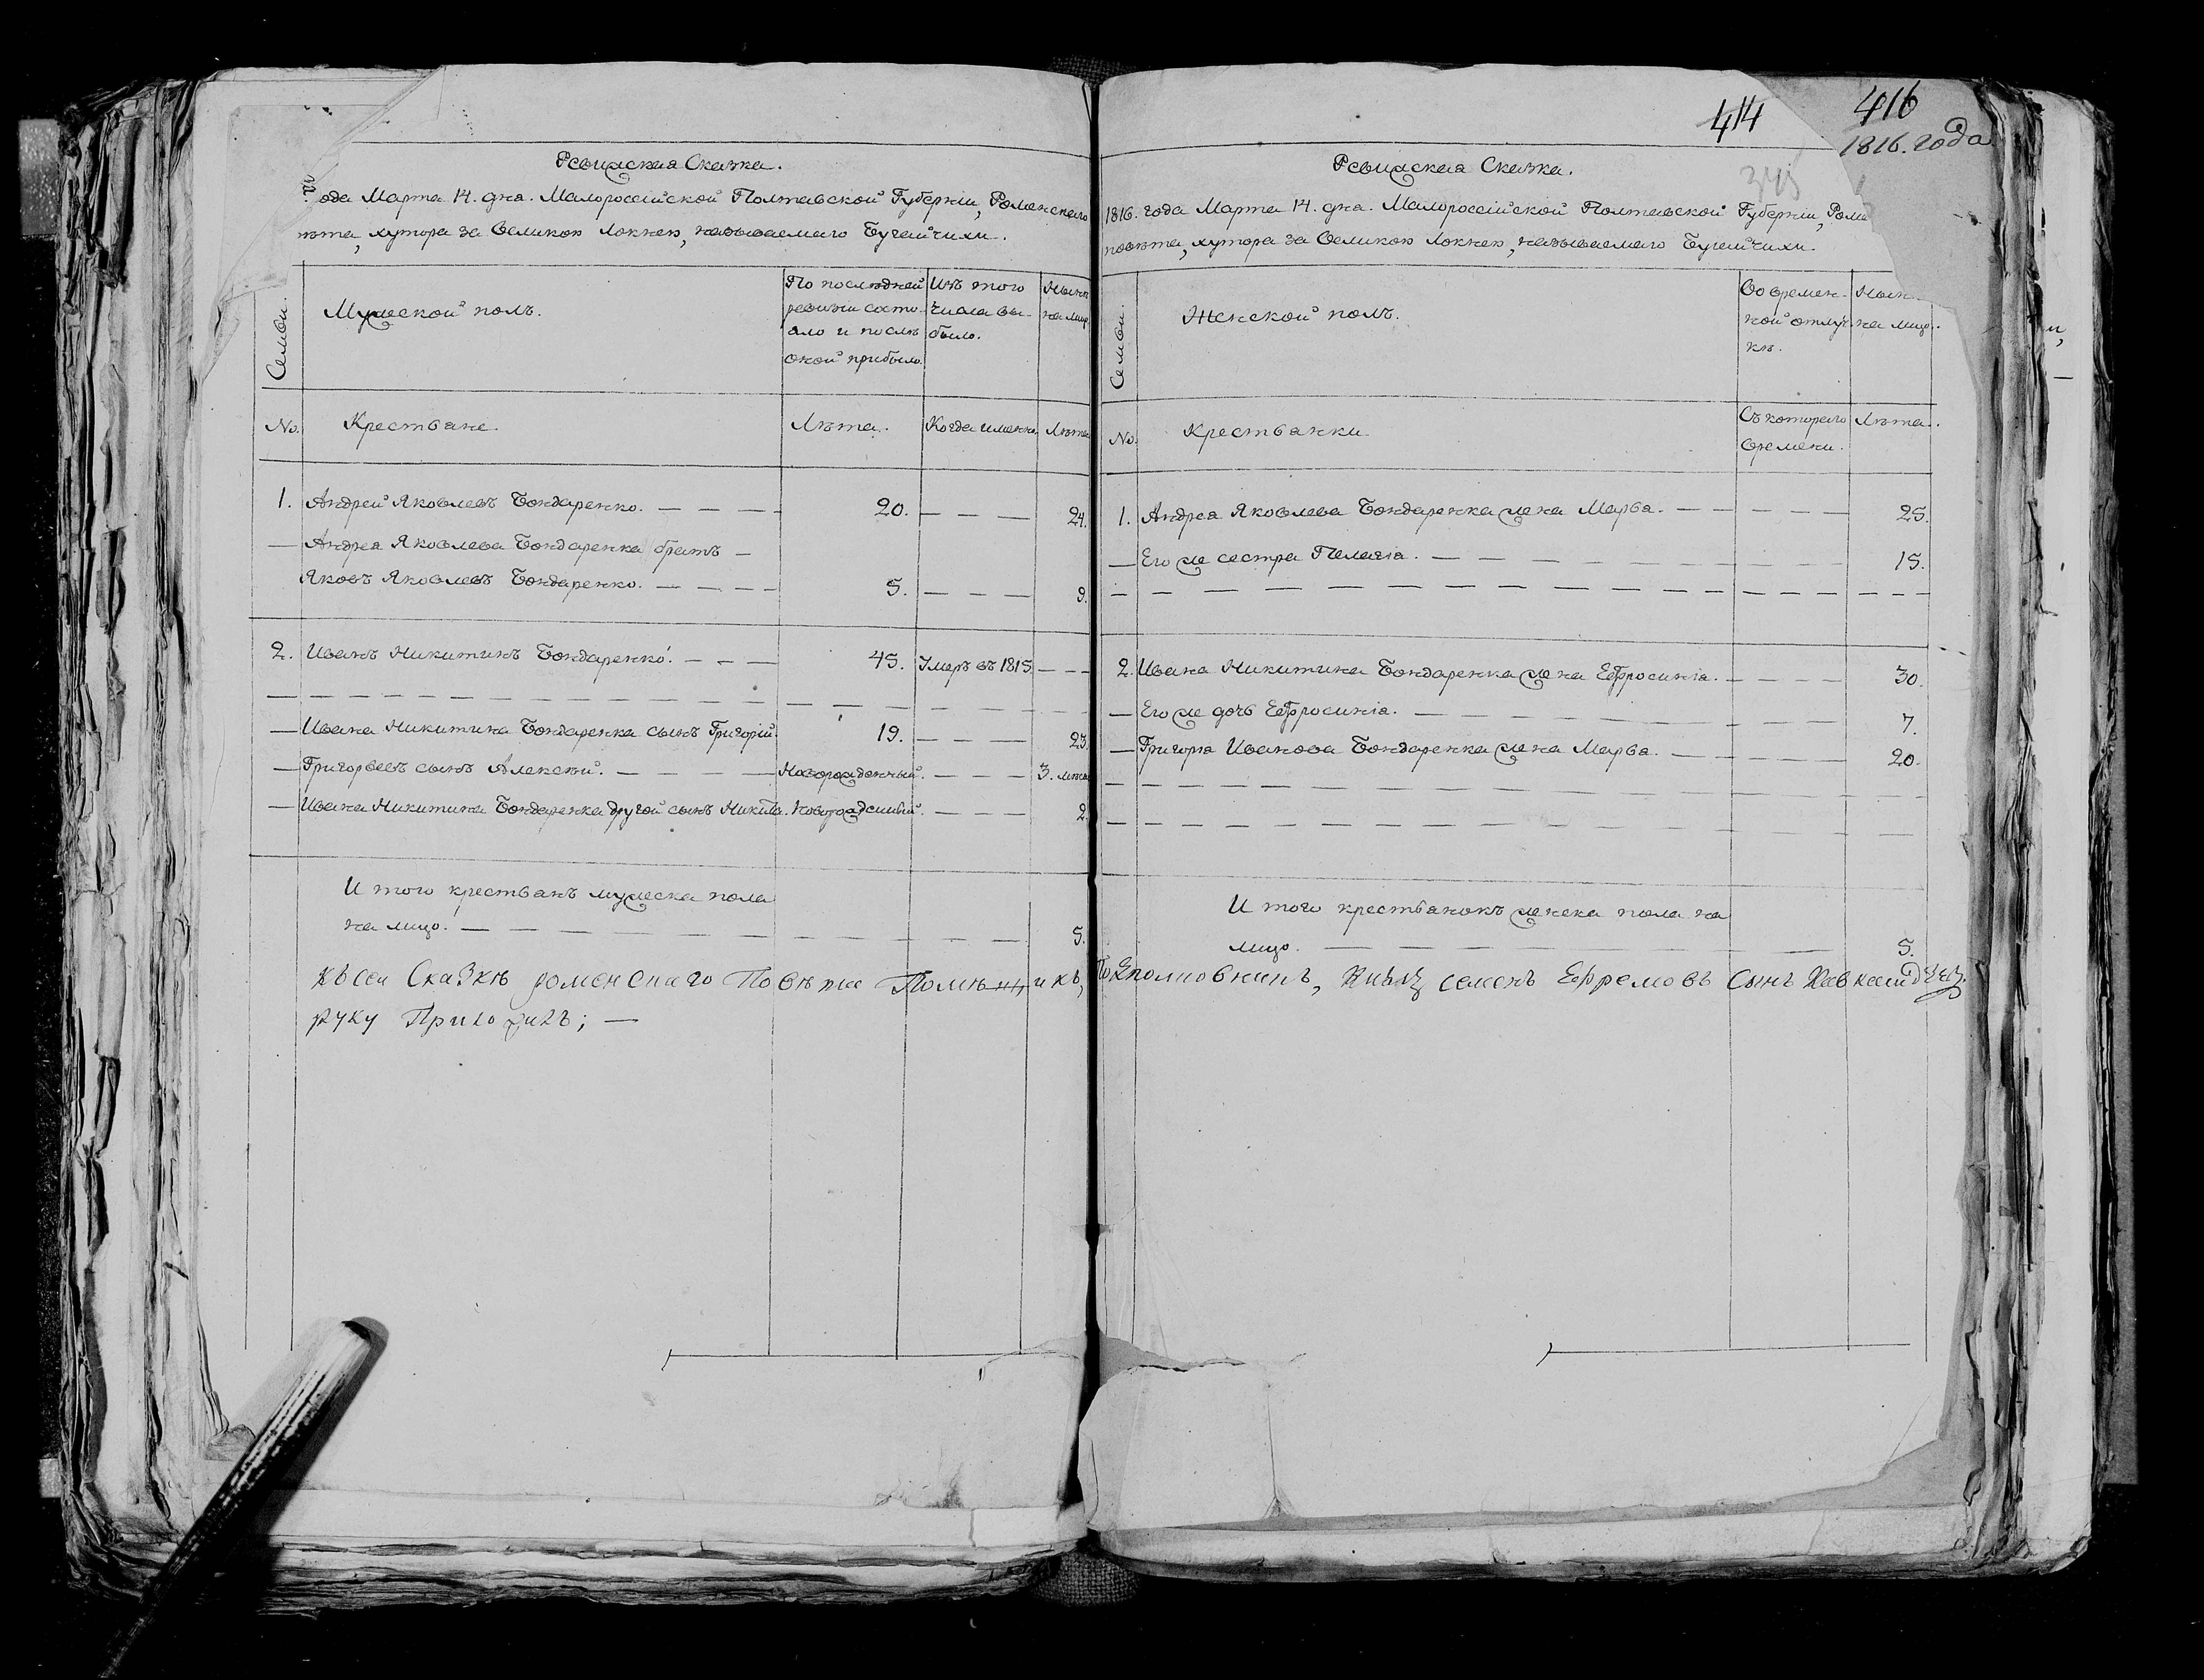 Ревижская Сказка.
ода Марта 14. дня. Малороссійской Полтавской Губерніи, Роменскаго
ѣта, хутора за Великою Локнею, называемаго Бугайчихи.
Семьи.
Мужеской полъ.
По последней ревизіи состо-
яло и послѣ оной прибыло.
Изъ того числа вы-
было.
Нынѣ на лицо
№.
Крестьяне.
Лѣта.
Когда именно.
Лѣта
1. Андрей Яковлевъ Бондаренко. — — — 20. — — — 24.
— Андрея Яковлева Бондаренка братъ —
Яковъ Яковлевъ Бондаренко. — — — 5. — — — 9.
2. Иванъ Никитинъ Бондаренко. — — — 45. Умеръ въ 1815 — —
— Ивана Никитина Бондаренка сынъ Григорій. 19. — — — 23.
— Григорьевъ сынъ Алексѣй. — — — — Новорожденный. — — — 3. лѣта
— Ивана Никитина Бондаренка другой сынъ Никита. Новорожденный. — — — 2.
И того крестьянъ мужеска пола
на лицо. — — — 5.
414
416
1816. года
345
Ревижская Сказка.
1816. года Марта 14. дня. Малороссійской Полтавской Губерніи, Роме
повѣта, хутора за Великою Локнею, называемаго Бугайчихи.
Семьи.
Женской полъ.
Во времен-
ной отлуч-
кѣ.
на лицо.
№.
Крестьянки.
Съ котораго
времени.
Лѣта.
1. Андрея Яковлева Бондаренка жена Марѳа. — — — 25.
— Его же сестра Пелагія. — — — 15.
2. Ивана Никитина Бондаренка жена Ефросинія. — — — 30.
— Его же дочь Ефросинія. — — — 7.
— Григорія Иванова Бондаренка жена Марѳа. — — — 20.
И того крестьянокъ женска пола на
лицо. — — — 5.
Къ сей Сказкѣ роменскаго Повѣта Помѣщикъ, Подполковникъ, Князь семенъ Ефремовъ Сынъ
руку Приложилъ; —